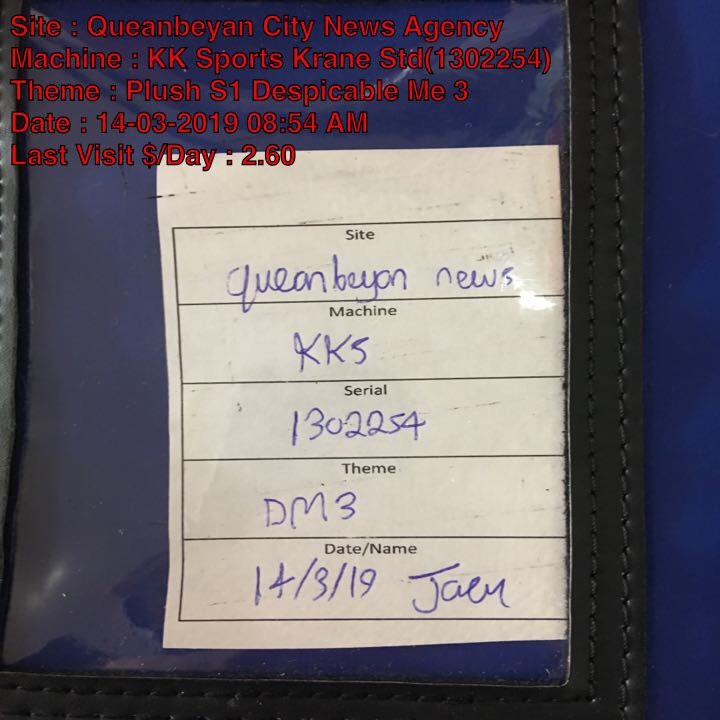 Site : Queanbeyan City News Agency
Machine : KK Sports Krane Std(1302254)
Theme : Plush S1 Despicable Me 3
Date : 14-03-2019 08:54 AM
Last Visit $/Day : 2.60
Site
queanbeyan news
Machine
KKS
Serial
1302254
Theme
DM3
Date/Name
14/3/19